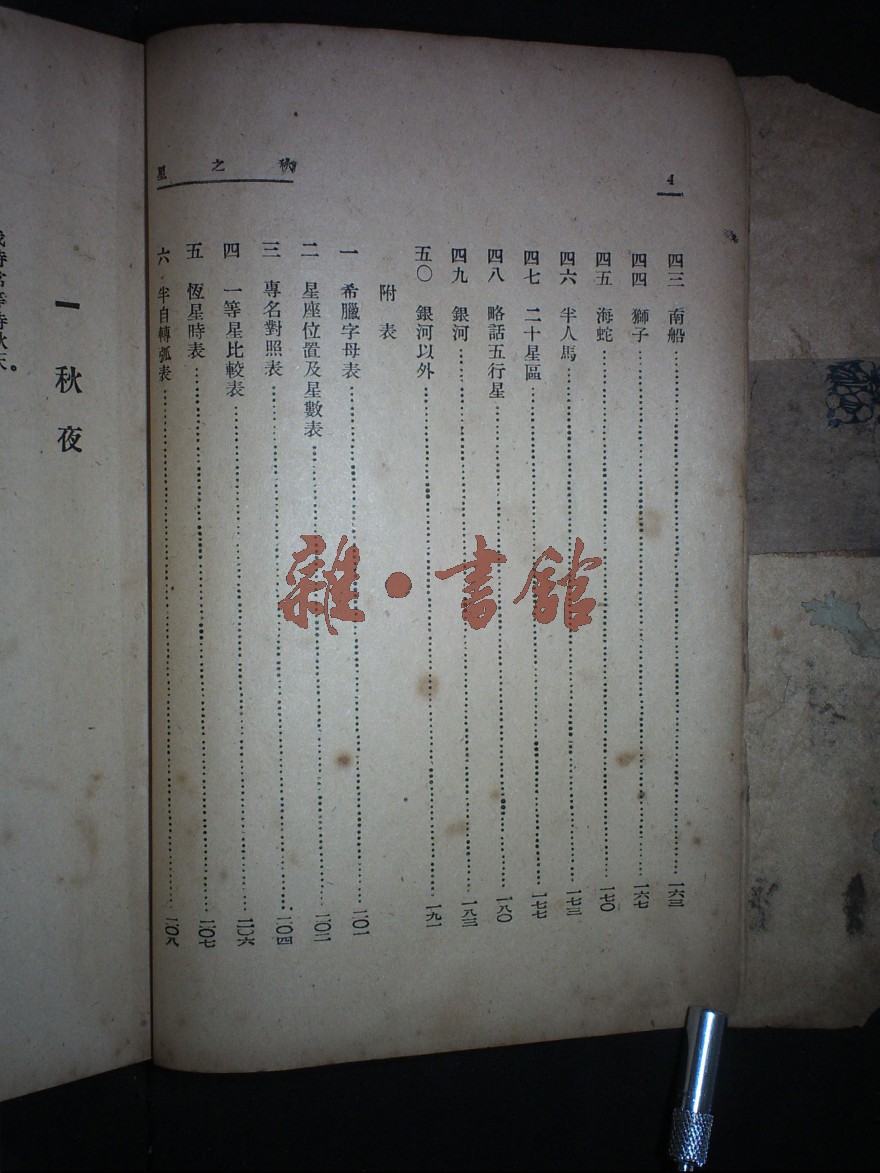 4
秋之星
四三 南船……一六三
四四 獅子……一六七
四五 海蛇……一七〇
四六 半人馬……一七三
四七 二十星區……一七七
四八 略話五行星……一八〇
四九 銀河……一八三
五〇 銀河以外……一九一
附表
一 希臘字母表……二〇一
二 星座位置及星數表……二〇二
三 專名對照表……二〇四
四 一等星比較表……二〇六
五 恆星時表……二〇七
六 半自轉弧表……二〇八
一 秋夜
雜·書館